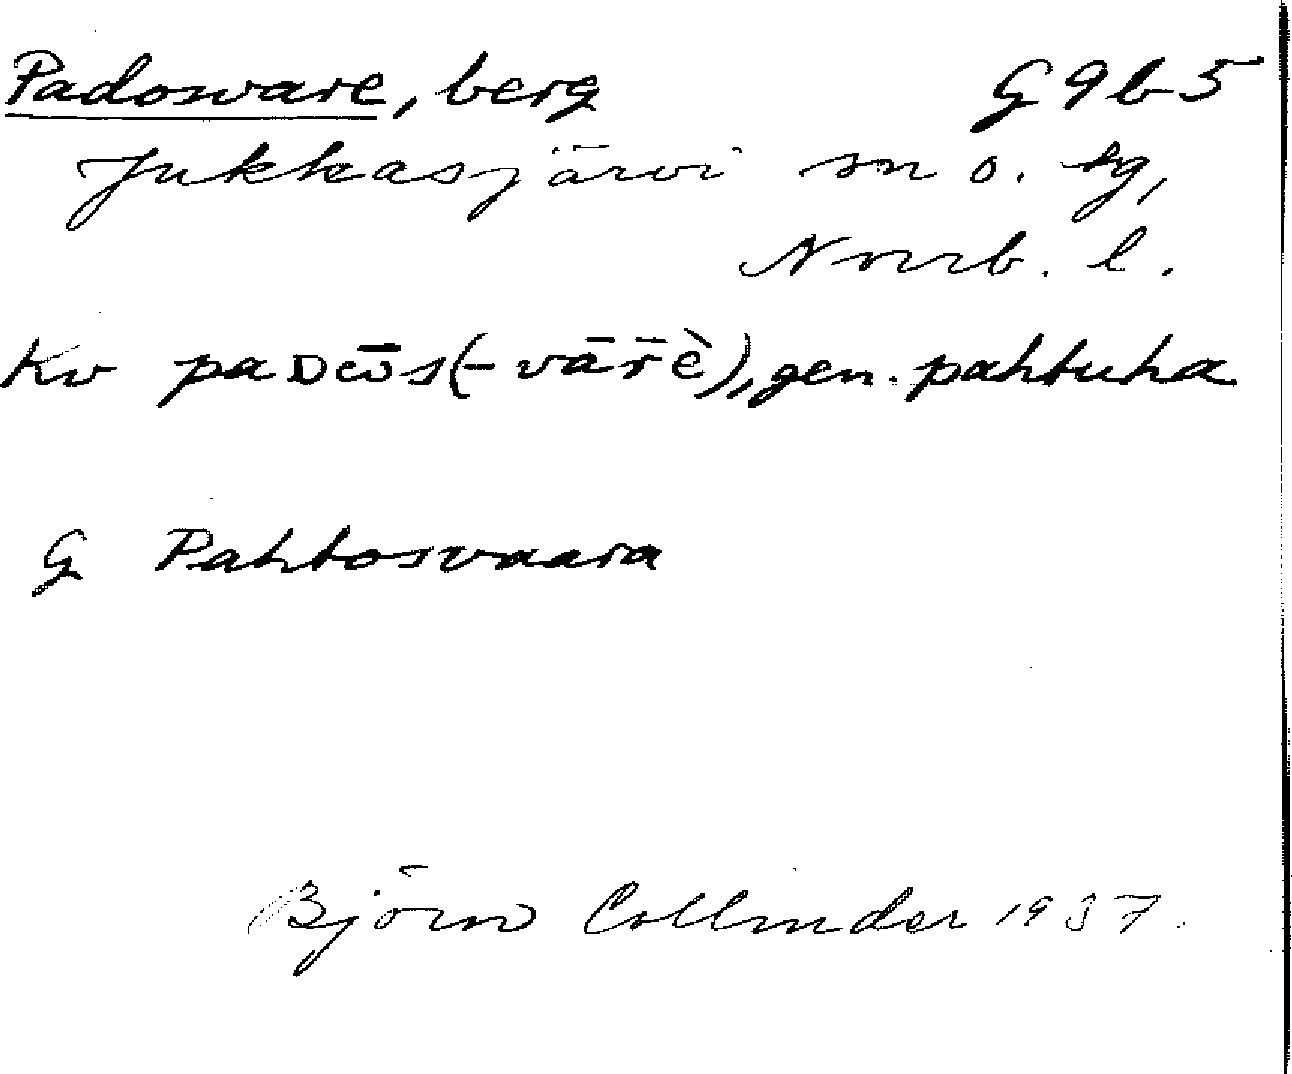 Padosware, berg G 9 b 5
Jukkasjärvi sn o. tg,
Norrb. l.
Kv paᴅω̄s(-vār̄è), gen. pahtuha
G Pahtosvaara
Björn Collinder 1937.